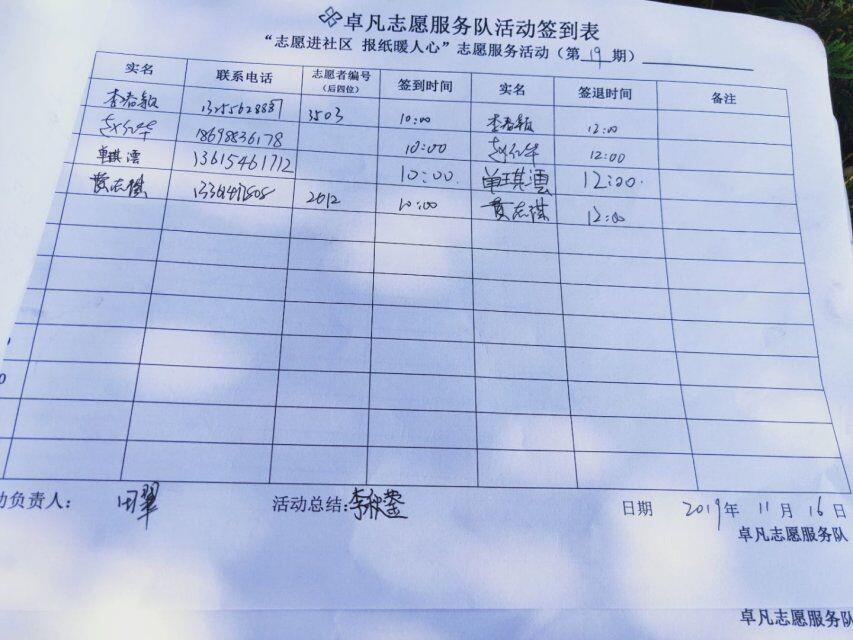 卓凡志愿服务队活动签到表
“志愿进社区 报纸暖人心”志愿服务活动（第19期）
实名 联系电话 志愿者编号（后四位） 签到时间 实名 签退时间 备注
李春敏 13255628887 3503 10:00 李春敏 12:00
赵仁华 18698836178 10:00 赵仁华 12:00
单琪澐 13615461712 10:00. 单琪澐 12:00.
黄志祺 2012 10:00 黄志祺 12:00
动负责人： 田翠 活动总结: 日期 2019年 11月 16日
卓凡志愿服务队
卓凡志愿服务队